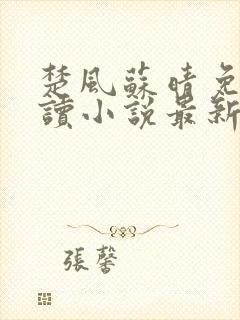 楚風蘇晴免
讀小說最新
張馨